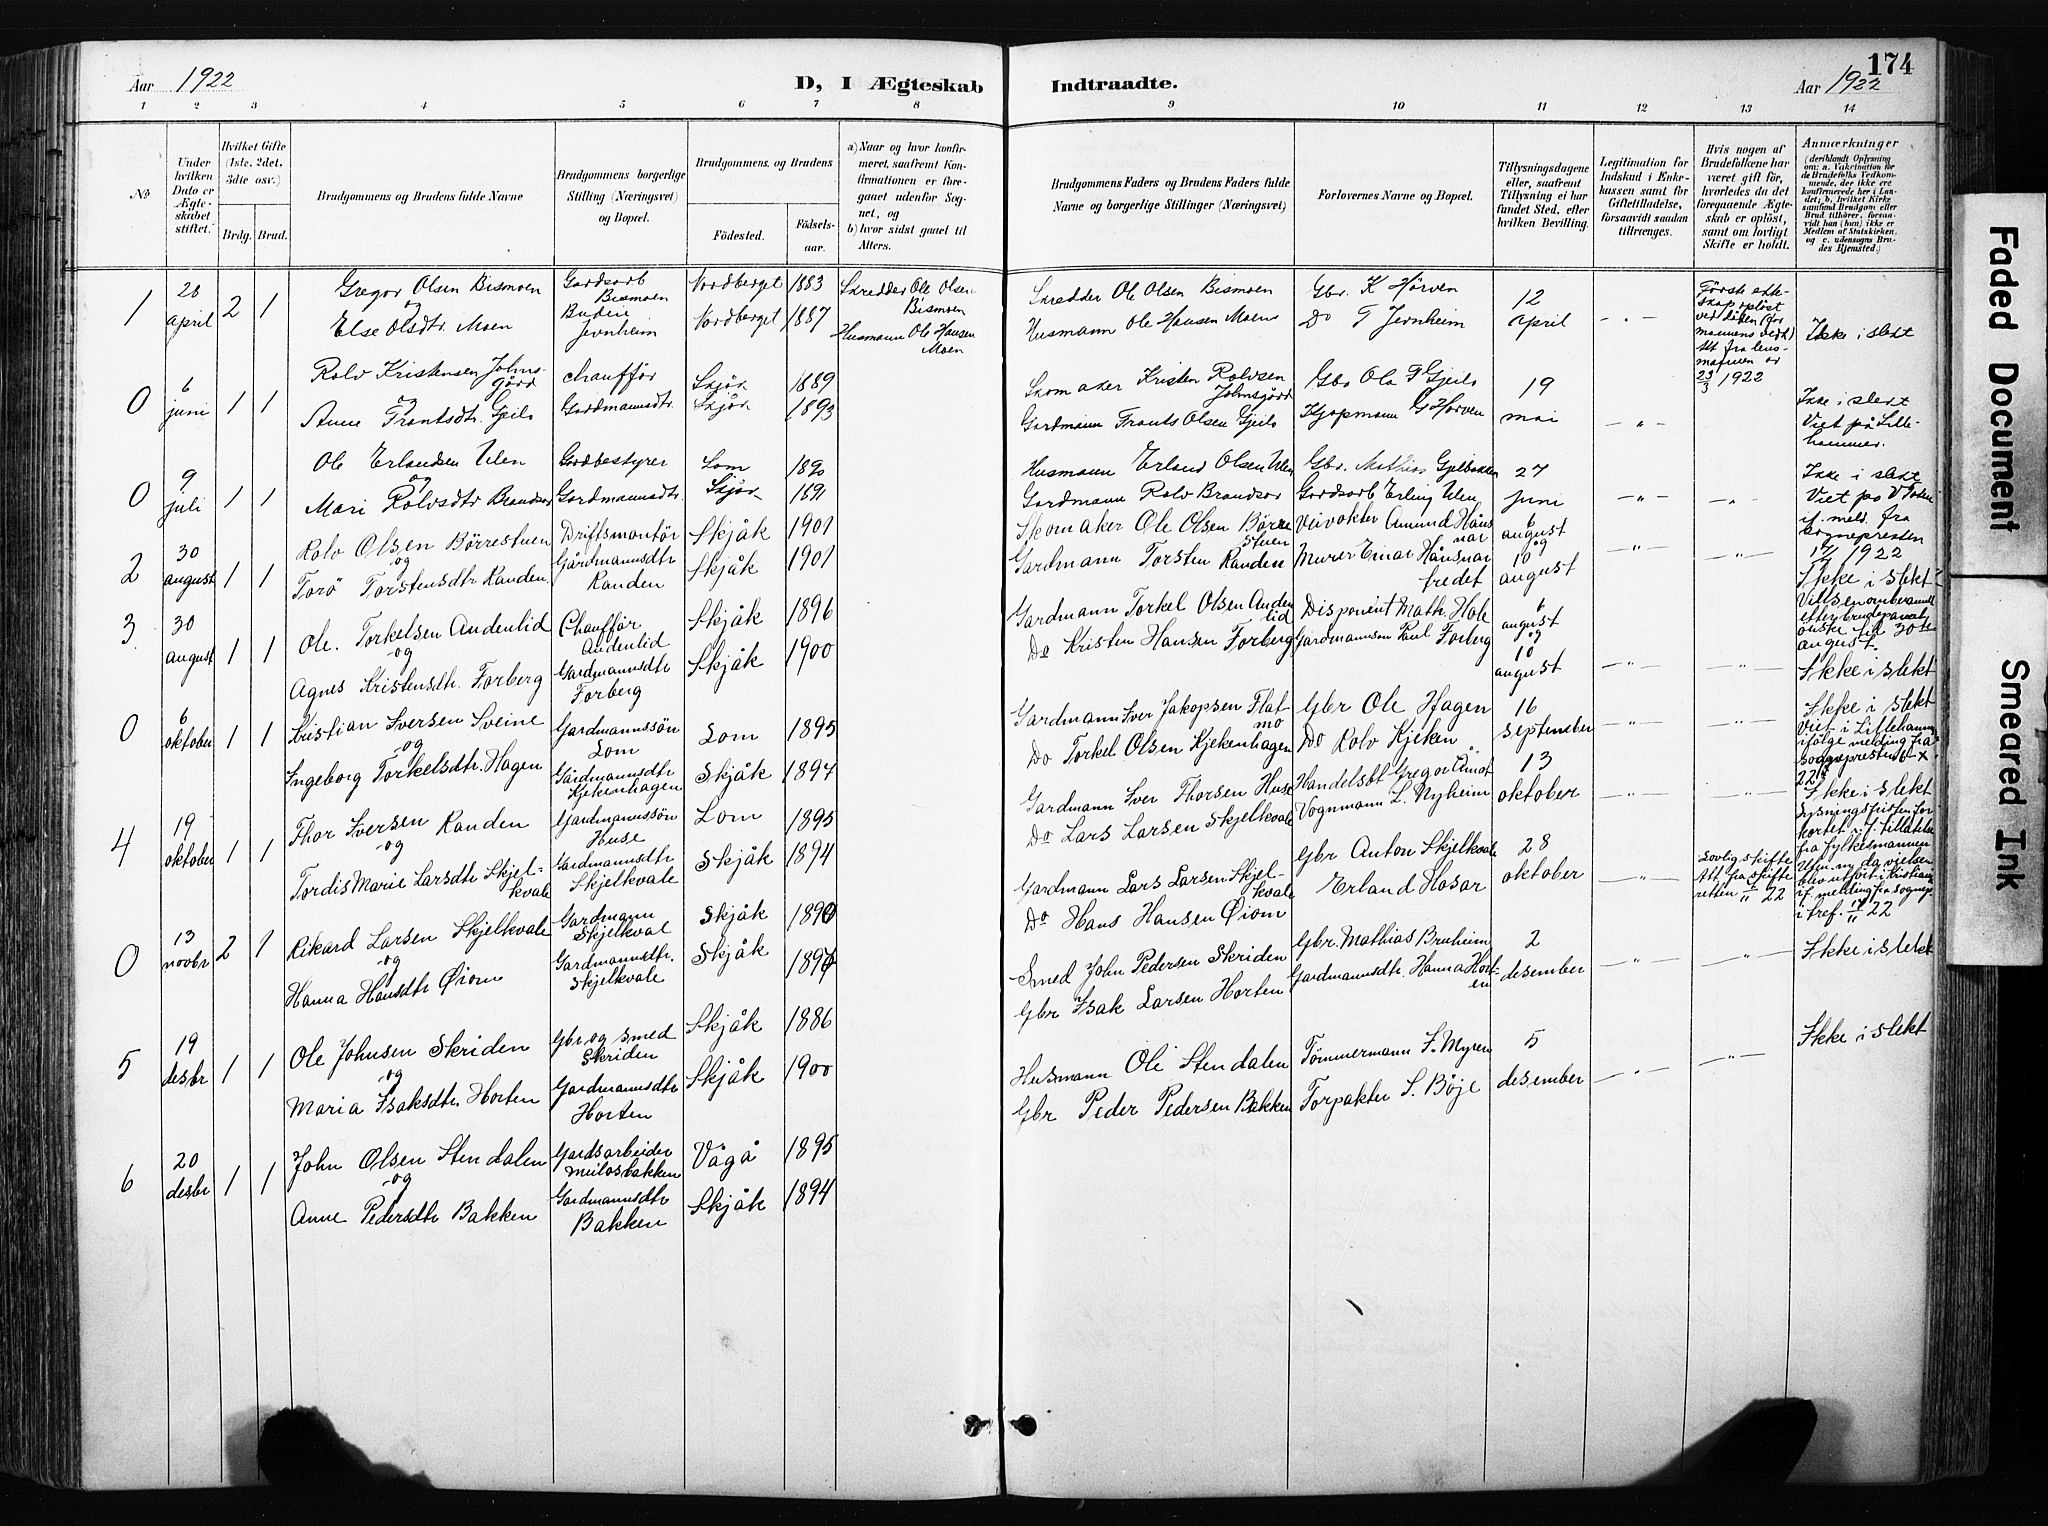 174
Aar 1922
D, I Ægteskab
Indtraadte.
Aar 1922
1 2 3 4 5 6 7 8
9 10 11 12 13 14
No
Under hvilken Dato er Ægteskabet stiftet.
Hvilket Gifte (1ste, 2det, 3die osv.)
Brdg. Brud.
Brudgommens og Brudens fulde Navne
Brudgommens borgerlige Stilling (Næringsvei) og Bopæl.
Brudgommens, og Brudens
Fødested.
Fødselsaar.
a) Naar og hvor konfirmeret, saafremt Konfirmationen er foregaaet udenfor Sognet, og
b) hvor sidst gaaet til Alters.
Brudgommens Faders og Brudens Faders fulde Navne og borgerlige Stillinger (Næringsvei)
Forlovernes Navne og Bopæl.
Tillysningsdagene eller, saafremt Tillysning ei har fundet Sted, efter hvilken Bevilling.
Legitimation for Indskud i Enkekassen samt for Giftetilladelse, forsaavidt saadan tiltrænges.
Hvis nogen af Brudefolkene har været gift før, hvorledes da det foregaaende Ægteskab er opløst, samt om lovligt Skifte er holdt.
Anmærkninger
(deriblandt Oplysning om: a. Vakcination for de Brudefolks Vedkommende, der ikke ere konfirmerede her i Landet; b, hvilket Kirkesamfund Brudgom eller Brud tilhører, forsaavidt han (hun) ikke er Medlem af Statskirken, og c. udensogns Brudes Hjemsted.)
1 28 april 2 1
Gregor Olsen Bismoen
og
Else Olsdtr. Moen
Gardsarb Bismoen
Budeie Jernheim
Nordberget 1883
Nordberget 1887
Skredder Ole Olsen Bismoen
Husmann Ole Hansen Moen
Skredder Ole Olsen Bismoen
Husmann Ole Hansen Moen
Gbr. K Hørven
Do T Jernheim
12 april
Første ekteskap opløst ved døden
Att fra lensmannen av 23/3 1922
Ikke i slekt
0 6 juni 1 1
Rolv Kristensen Johnsgård
og
Anne Frantsdtr. Gjeilo
chauffør
Gardmannsdtr.
Skjåk 1889
Skjåk 1893
Skomaker Kristen Rolvsen Johnsgård
Gardmann Frants Olsen Gjeilo
Gbr Ola F Gjeilo
Kjøpmann G Hørven
19 mai
Ikke i slekt
Viet på Lillehammer.
0 9 juli 1 1
Ole Erlandsen Ulen
og
Mari Rolvsdtr Brandsar
Gardbestyrer
Gardmannsdtr.
Lom 1890
Skjåk 1891
Husmann Erland Olsen Ulen
Gardmann Rolv Brandsar
Gbr. Mathias Gjelbakken
Gardsarb Erling Ulen
27 juni
Ikke i slekt
if. meld. fra sognepresten
1922
2 30 august 1 1
Rolv Olsen Börrestuen
og
Torö Torstensdtr Randen.
Driftsmontör
Gårdmannsdtr Randen
Skjåk 1901
Skjåk 1901
Skomaker Ole Olsen Börrestuen
Gardmann Torsten Randen
Veivokter Amund Håusnar
Murer Einar Håusnarbredet
6 august og 10 august
Ikke i slekt
30te august.
3 30 august 1 1
Ole. Torkelsen Andenlid
og
Agnes Kristensdtr. Forberg
Chauffør Andenlid
Gardmannsdtr Forberg
Skjåk 1896
Skjåk 1900
Gardmann Torkel Olsen Andenlid
Do Kristen Hansen Forberg
Disponent Math. Hole
Gardmannsøn Paul Forberg
6 august og 10 august
Ikke i slekt
0 6 oktober 1 1
Kristian Iversen Sveine
og
Ingeborg Torkelsdtr. Hagen
Gardmannssön Lom
Gårdmannsdtr Kjekenhagen
Lom 1895
Skjåk 1897
Gardmann Iver Jakopsen Flatmo
Do Torkel Olsen Kjekenhagen
Gbr Ole Hagen
Do Rolv Kjeken
16 september
Ikke i slekt
Viet i Lillehammer
ifölge melding fra sognepresten
4 19 oktober 1 1
Thor Iversen Randen
og
Tordis Marie Larsdtr Skjelkvale
Gardmannssön Huse
Gardmannsdtr Skjelkvale
Lom 1895
Skjåk 1894
Gardmann Iver Thorsen Huse
Do Lars Larsen Skjelkvale
Handelsbt Gregor Åmot
Vognmann L. Nyheim
13 oktober
Ikke i slekt
0 13 novbr 2 1
Rikard Larsen Skjelkvale
og
Hanna Hansdtr Öiom
Gardmann Skjelkval
Gardmannsdtr. Skjelkvale
Skjåk 1890
Skjåk 1890
Gardmann Lars Larsen Skjelkvale
Do Hans Hansen Öiom
Gbr Anton Skjelkvale
Erland Hosar
28 oktober
Lovlig skifte
Att. fra skifteretten 22
5 19 desbr 1 1
Ole Johnsen Skriden
og
Maria Isaksdtr. Horten
Gbr. og smed Skriden
Gardmannsdtr Horten
Skjåk 1886
Skjåk 1900
Smed John Pedersen Skriden
Gbr Isak Larsen Horten
Gbr. Mathias Bruheim
Gardmannsdtr. Hanna Horten
2 desember
Ikke i slekt
6 20 desbr 1 1
John Olsen Stendalen
og
Anne Pedersdtr Bakken
Gardsarbeider Meilosbakken
Gardmannsdtr Bakken
Vågå 1895
Skjåk 1894
Husmann Ole Stendalen
Gbr Peder Pedersen Bakken
Tömmermann S. Myren
Forpakter S. Böje
5 desember
Ikke i slekt
Faded Document
Smeared Ink